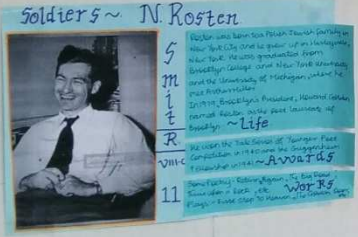 Soldiers~ N. Rosten
Rosten was born to a Polish Jewish family in
New York City and he grew up in Hurleyville,
New York. He was graduated from
Brooklyn College and New York University
and the University of Michigan, where he
met Arthur Miller.
In 1979, Brooklyn's President, Howard Golden,
named Rosten as the poet laureate of
Brooklyn. ~Life
He won the Yale Series of Younger Poets
Competition in 1940 and the Guggenheim
Fellowship in 1941. ~Awards
Some Poetry -
Works
Plays - First Stop to Heaven, The Golden Door,
Smith
R.
VIII-C
11